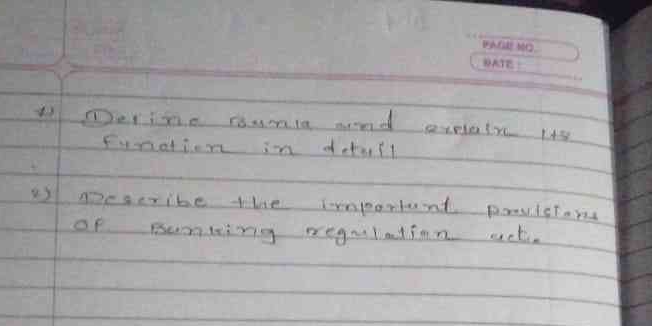 PAGE NO.
DATE :
1) Define Bank and explain its
function in detail
2) Describe the important provisions
of Banking regulation act.